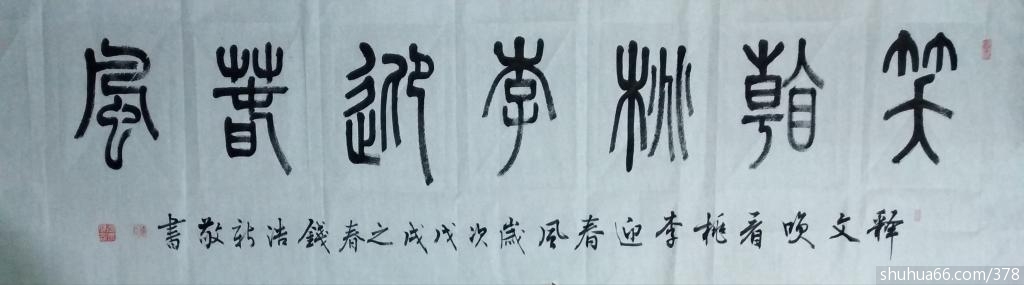 笑看桃李迎春風
釋文咲看桃李迎春风歲次戊戌之春錢浩新敬書
shuhua66.com/378